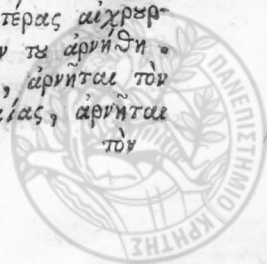 τέρας αἰχρȣρ-
ν τȣ ἀρνήθη.
, ἀρνῆται τὸν
ίας, ἀρνῆται
τὸν
ΠΑΝΕΠΙΣΤΗΜΙΟ ΚΡΗΤΗΣ